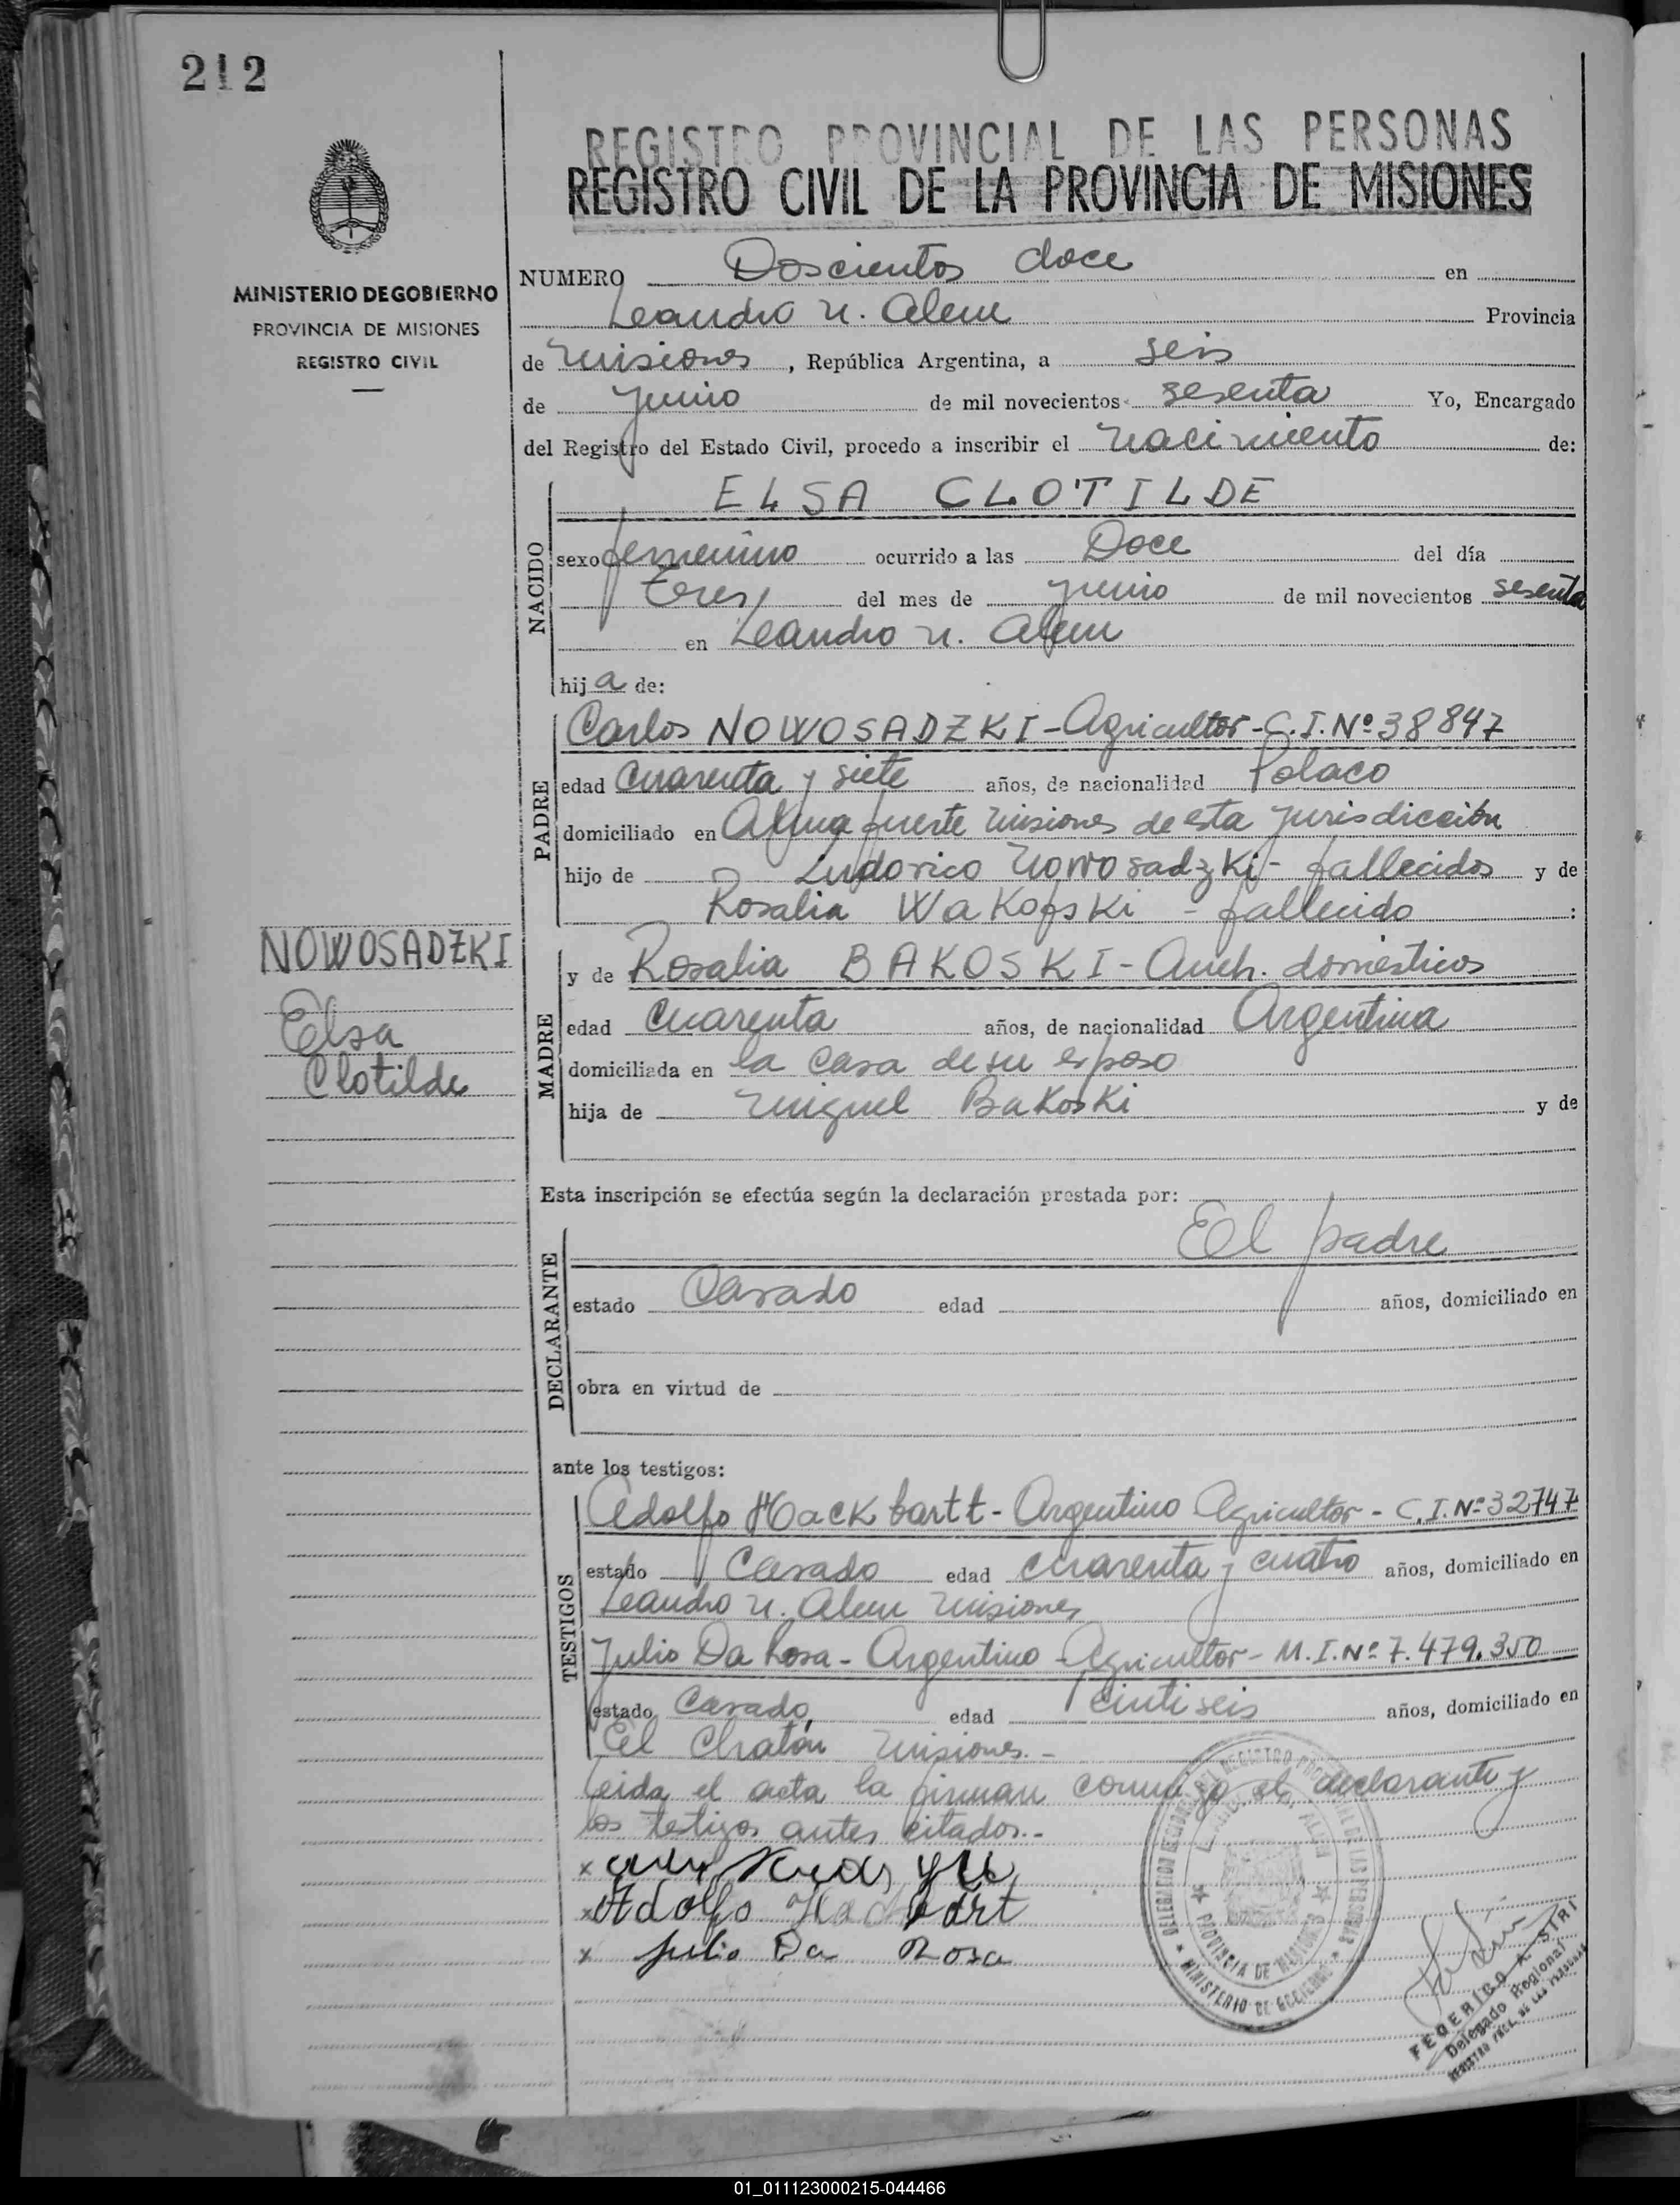 212
REGISTRO PROVINCIAL DE LAS PERSONAS
REGISTRO CIVIL DE LA PROVINCIA DE MISIONES
MINISTERIO DE GOBIERNO
PROVINCIA DE MISIONES
REGISTRO CIVIL
NUMERO Doscientos doce en
Leandro N. Alem Provincia
de Misiones, República Argentina, a seis
de Junio de mil novecientos sesenta Yo, Encargado
del Registro del Estado Civil, procedo a inscribir el Nacimiento de:
NACIDO
ELSA CLOTILDE
sexo femenino ocurrido a las Doce del día
Tres del mes de Junio de mil novecientos sesenta
en Leandro N. Alem
hija de:
PADRE
Carlos NOWOSADZKI - Agricultor - C.I. Nº 38847
edad Cuarenta y siete años, de nacionalidad Polaco
domiciliado en Almafuerte Misiones de esta Jurisdicción
hijo de Ludovico Nowosadzki - fallecidos y de
Rosalia Wakofski - fallecido :
NOWOSADZKI
Elsa
Clotilde
MADRE
y de Rosalia BAKOSKI - Queh. domésticos
edad Cuarenta años, de nacionalidad Argentina
domiciliada en la casa de su esposo
hija de Miguel Bakoski y de
Esta inscripción se efectúa según la declaración prestada por:
DECLARANTE
El padre
estado Casado edad años, domiciliado en
obra en virtud de
ante los testigos:
TESTIGOS
Adolfo Hackbartt - Argentino Agricultor - C.I. Nº 32747
estado Casado edad cuarenta y cuatro años, domiciliado en
Leandro N. Alem Misiones
Julio Da Rosa - Argentino - Agricultor - M.I. Nº 7.479.350
estado Casado, edad veintiseis años, domiciliado en
El Chatón Misiones.-
Leida el acta la firman conmigo el declarante y
los testigos antes citados.-
x
x Adolfo Hackbart
x Julio Da Rosa
DELEGACION REGIONAL DEL REGISTRO PROVINCIAL DE LAS PERSONAS
LEANDRO N. ALEM
PROVINCIA DE MISIONES
MINISTERIO DE GOBIERNO
FEDERICO A. SIRI
Delegado Regional
REGISTRO PROV. DE LAS PERSONAS
01_011123000215-044466